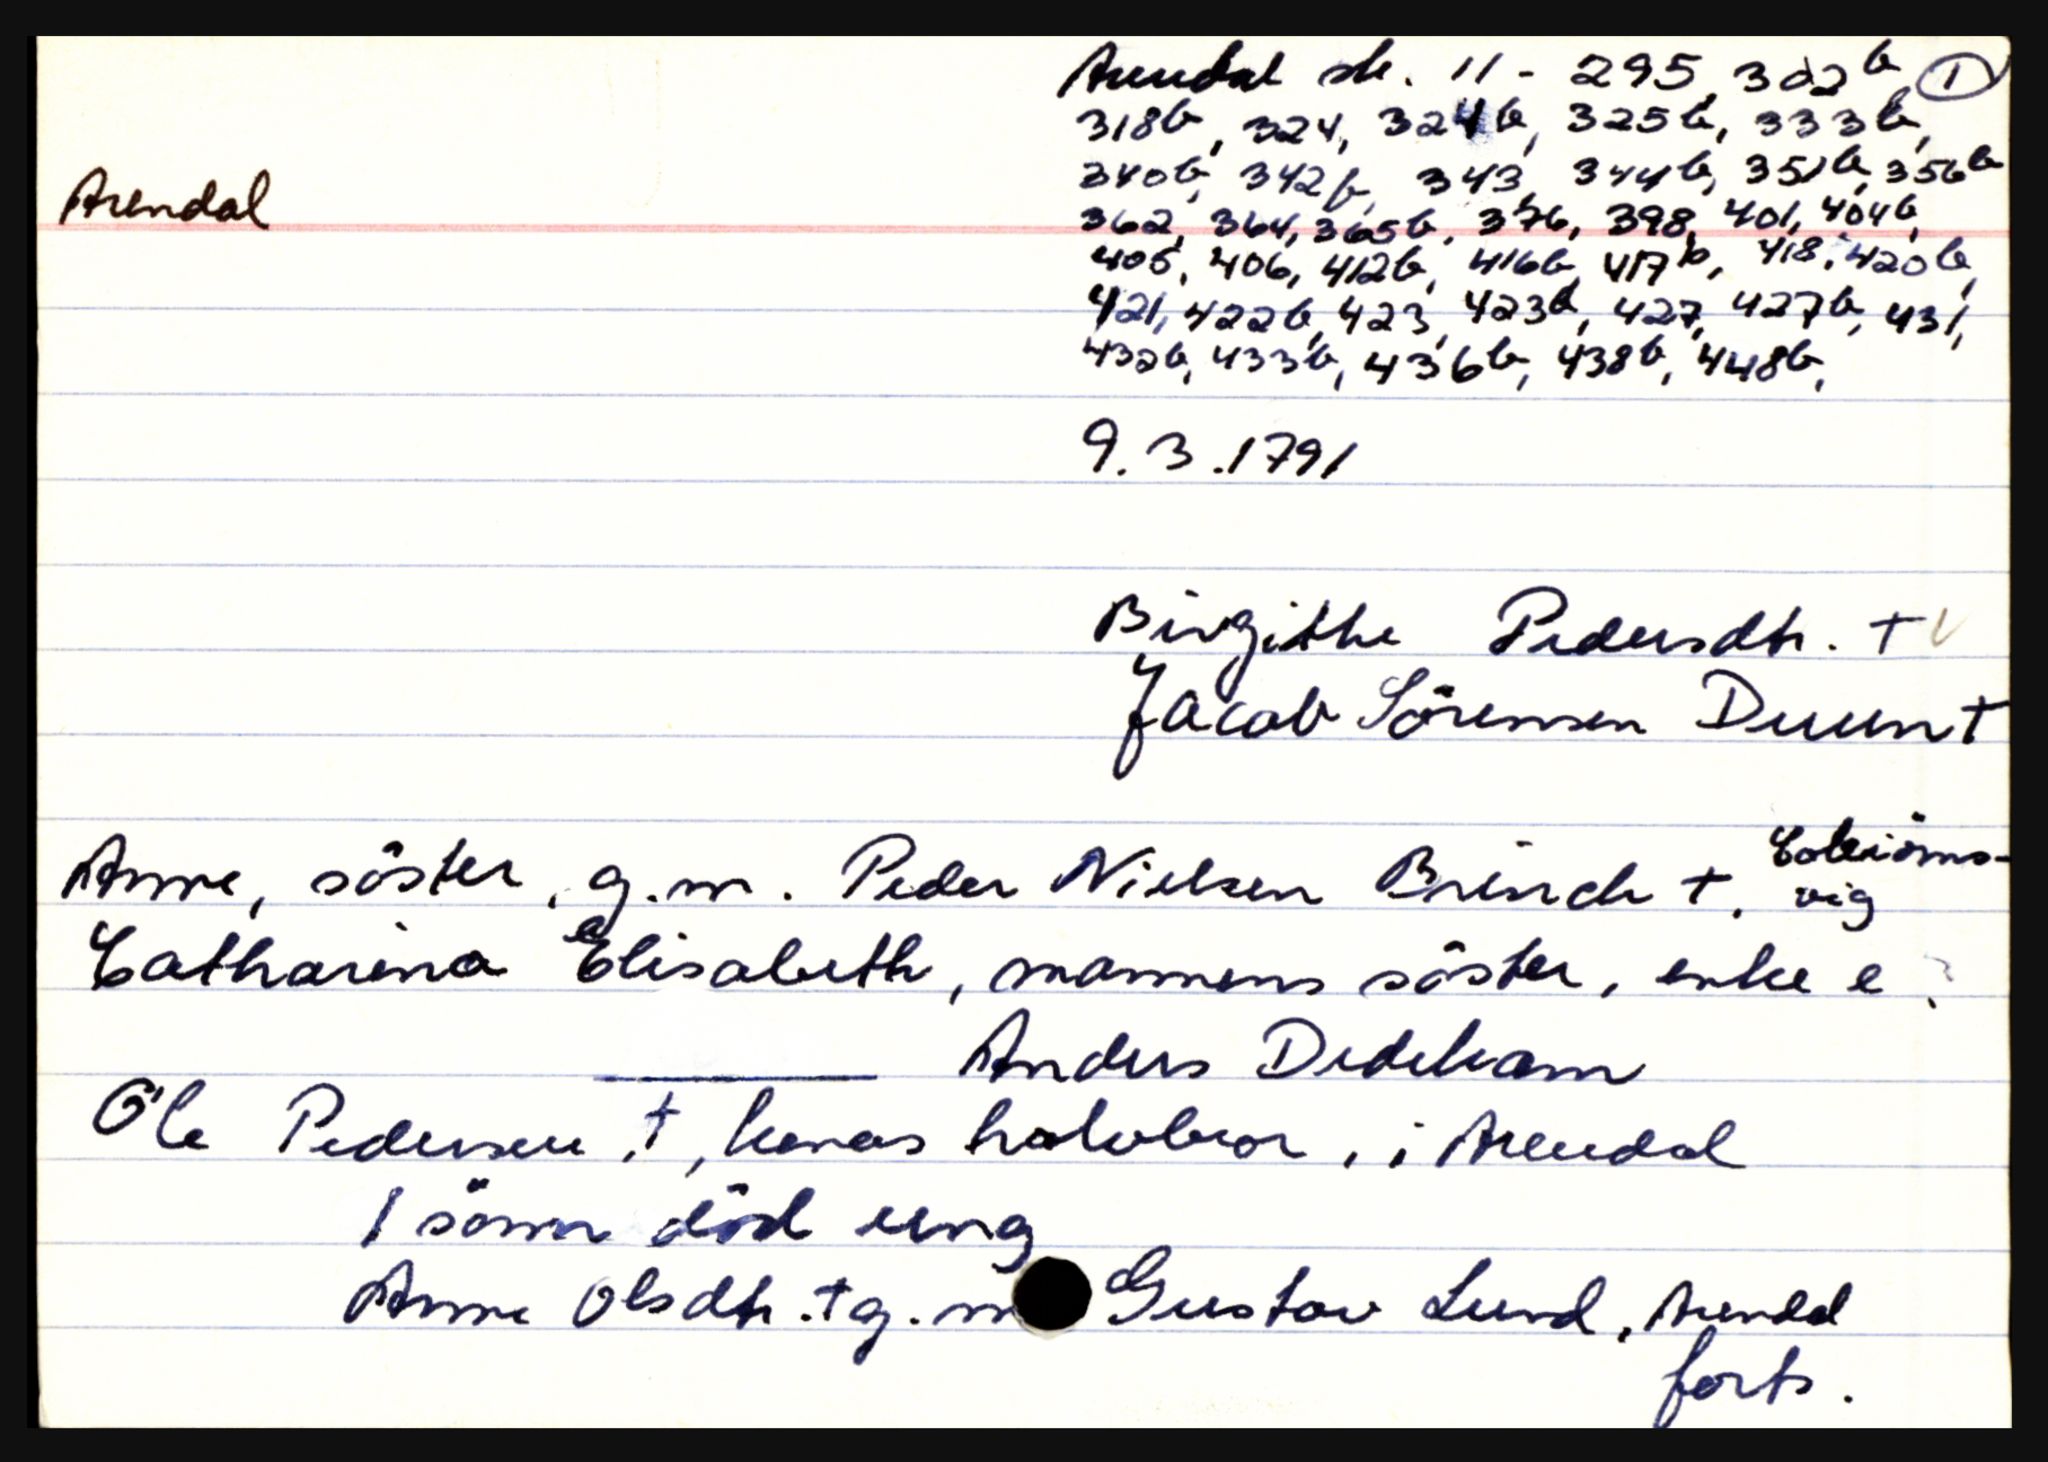 Arendal sk. 11 - 295, 302b, 1
318b, 324, 324b, 325b, 333b,
340b, 342b, 343, 344b, 351b, 356b
Arendal
362, 364, 365b, 376, 398, 401, 404b,
405, 406, 412b, 416b, 417b, 418, 420b,
421, 422b, 423, 423b, 427, 427b, 431,
432b, 433b, 436b, 438b, 448b,
9.3.1791
Birgithe Pedersdtr. †
Jacob Sörensen Duun †
Anne, söster, g.m. Peder Nielsen Brinch †,
vig
Catharina Elisabeth, mannens söster, enke e ?
Anders Dedekam
Ole Pedersen †, konas halvbror, i Arendal
1 sönn död ung
Anne Olsdtr. † g.m. Gustav Lund, Arendal
forts.